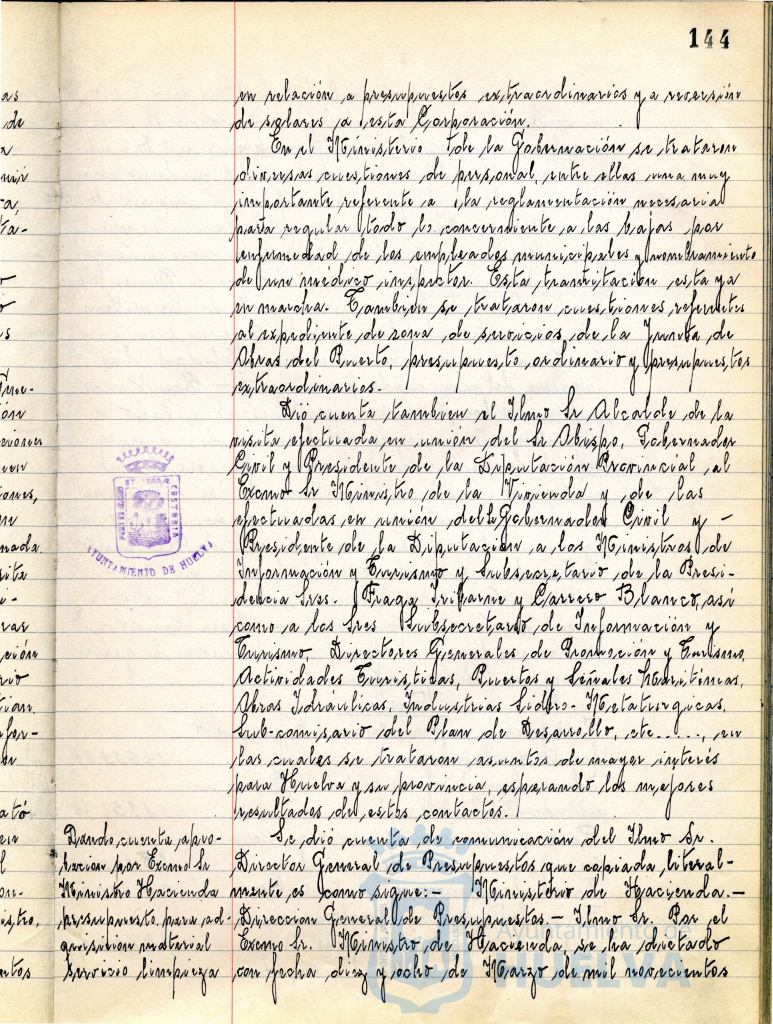 144
en relación a presupuestos extraordinarios y a reversión
de solares a esta Corporación.
En el Ministerio de la Gobernación se trataron
diversas cuestiones de personal, entre ellas una muy
importante referente a la reglamentación necesaria
para regular todo lo concerniente a las bajas por
enfermedad de los empleados municipales y nombramiento
de un médico inspector. Esta tramitación esta ya
en marcha. Tambien se trataron cuestiones referentes
al expediente de zona de servicios de la Junta de
Obras del Puerto, presupuesto ordinario y presupuestos
extraordinarios.
Dió cuenta tambien el Ilmo Sr Alcalde de la
visita efectuada en unión del Sr Obispo, Gobernador
Civil y Presidente de la Diputación Provincial, al
Excmo Sr Ministro de la Vivienda y de las
efectuadas en unión del Sr Gobernador Civil y —
Presidente de la Diputación a los Ministros de
Información y Turismo y Subsecretario de la Presi-
dencia Sres. Fraga Iribarne y Carrero Blanco, así
como a los Sres Subsecretario de Información y
Turismo, Directores Generales de Promoción y Turismo,
Actividades Turisticas, Puertos y Señales Maritimas,
Obras Idráulicas, Industrias Sidero-Metalurgicas,
Sub-comisario del Plan de Desarrollo, etc....., en
las cuales se trataron asuntos de mayor interés
para Huelva y su provincia, esperando los mejores
resultados de estos contactos.
Dando cuenta apro-
bacion por Excmo Sr
Ministro Hacienda
presupuesto para ad-
quisición material
Servicio limpieza
Se dió cuenta de comunicación del Ilmo Sr.
Director General de Presupuestos que copiada literal-
mente es como sigue:— Ministerio de Hacienda.—
Direccion General de Presupuestos.— Ilmo Sr. Por el
Excmo Sr. Ministro de Hacienda, se ha dictado
con fecha diez y ocho de Marzo de mil novecientos
AYUNTAMIENTO DE HUELVA
Ayuntamiento de
HUELVA